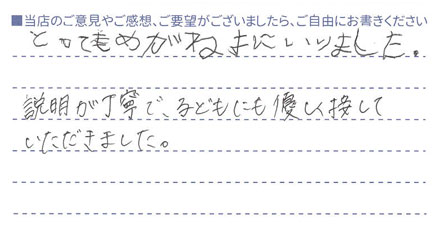 ■当店のご意見やご感想、ご要望がございましたら、ご自由にお書きください
とってもめがねきにいりました。
説明が丁寧で、子どもにも優しく接して
いただきました。